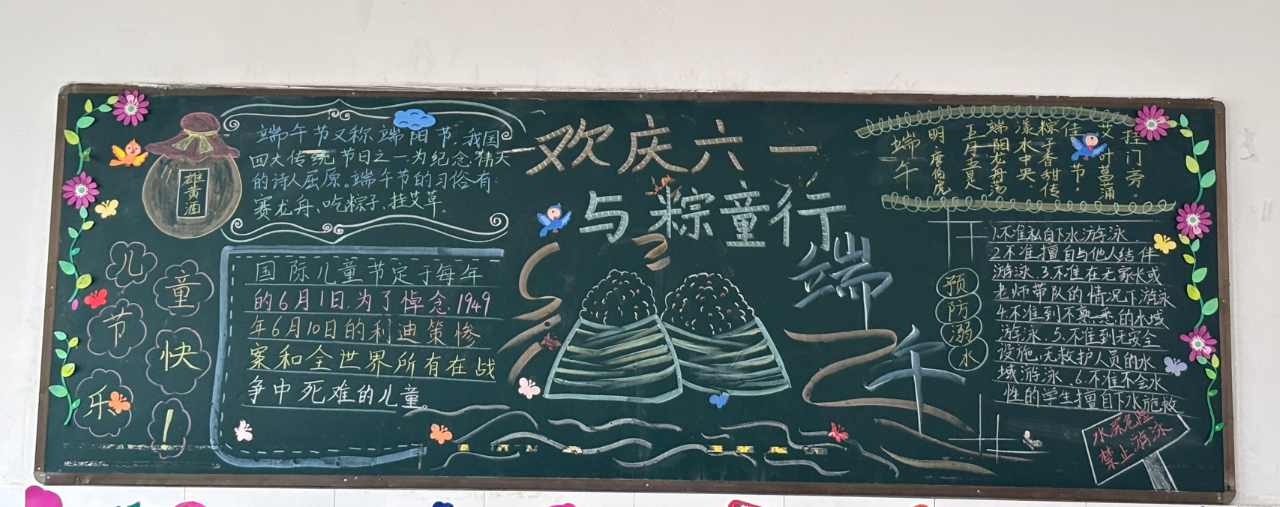 雄黄酒
端午节又称端阳节,我国
四大传统节日之一为纪念伟大
的诗人屈原。端午节的习俗有:
赛龙舟、吃粽子、挂艾草。
欢庆六一
与粽童行
端午
五月五是夏
端阳龙舟汤
漾水中央、
粽子香甜传
佳节!
艾叶菖蒲
挂门旁。
儿童
节快
乐!
国际儿童节定于每年
的6月1日.为了悼念1949
年6月10日的利迪策惨
案和全世界所有在战
争中死难的儿童。
端午
预防溺水
1.不准私自下水游泳
2.不准擅自与他人结伴
游泳.3.不准在无家长或
老师带队的情况下游泳
4.不准到不熟悉的水域
游泳.5.不准到无安全
设施,无救护人员的水
域游泳.6.不准不会水
性的学生擅自下水施救
水深危险
禁止游泳